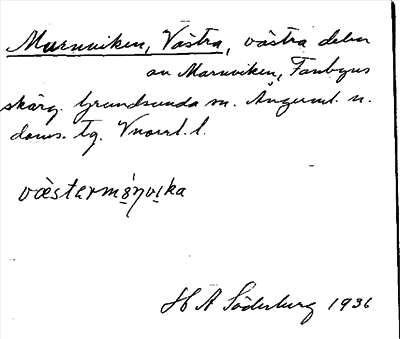 Marnviken, Västra, västra delen
av Marnviken, Fanbyns
skärg. Grundsunda sn. Ångerml. n.
doms. tg. Vnorrl. l.
västermǫ̀ŋvi̱ka
H A Söderberg 1936